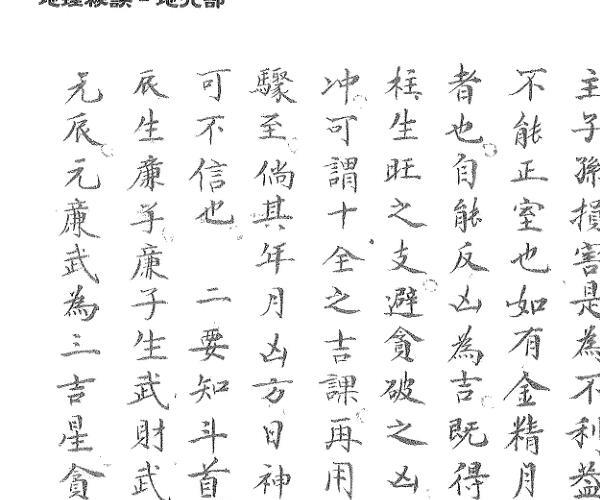 主子孫損害是為不利益
不能正室也如有金精月
者也自能反凶為吉既得
柱生旺之支避貪破之凶
冲可謂十全之吉課再用
驟至倘其年月凶方日神
可不信也 二要知斗首
辰生廉子廉子生武財武
元辰元廉武為三吉星貪